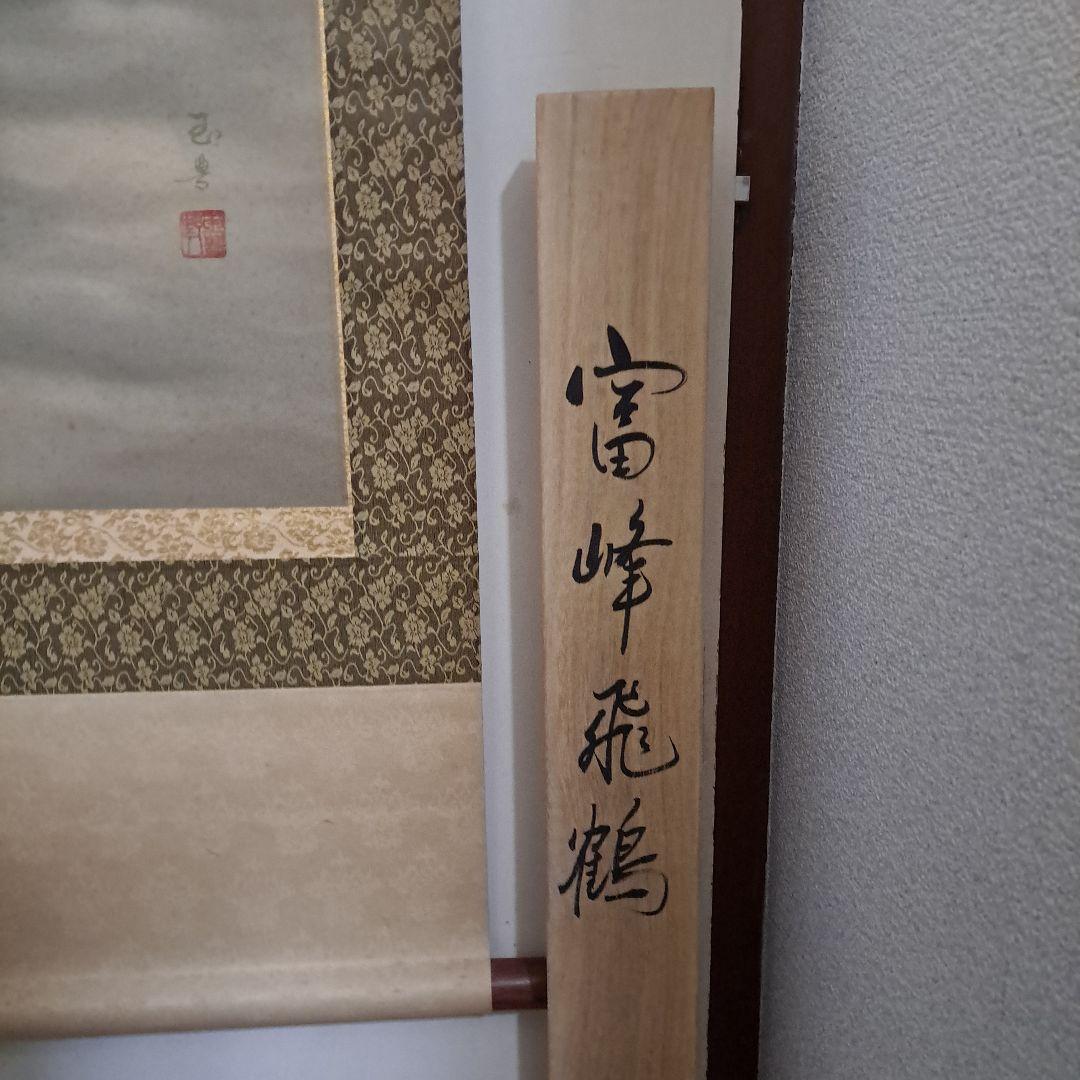 富峰飛鶴